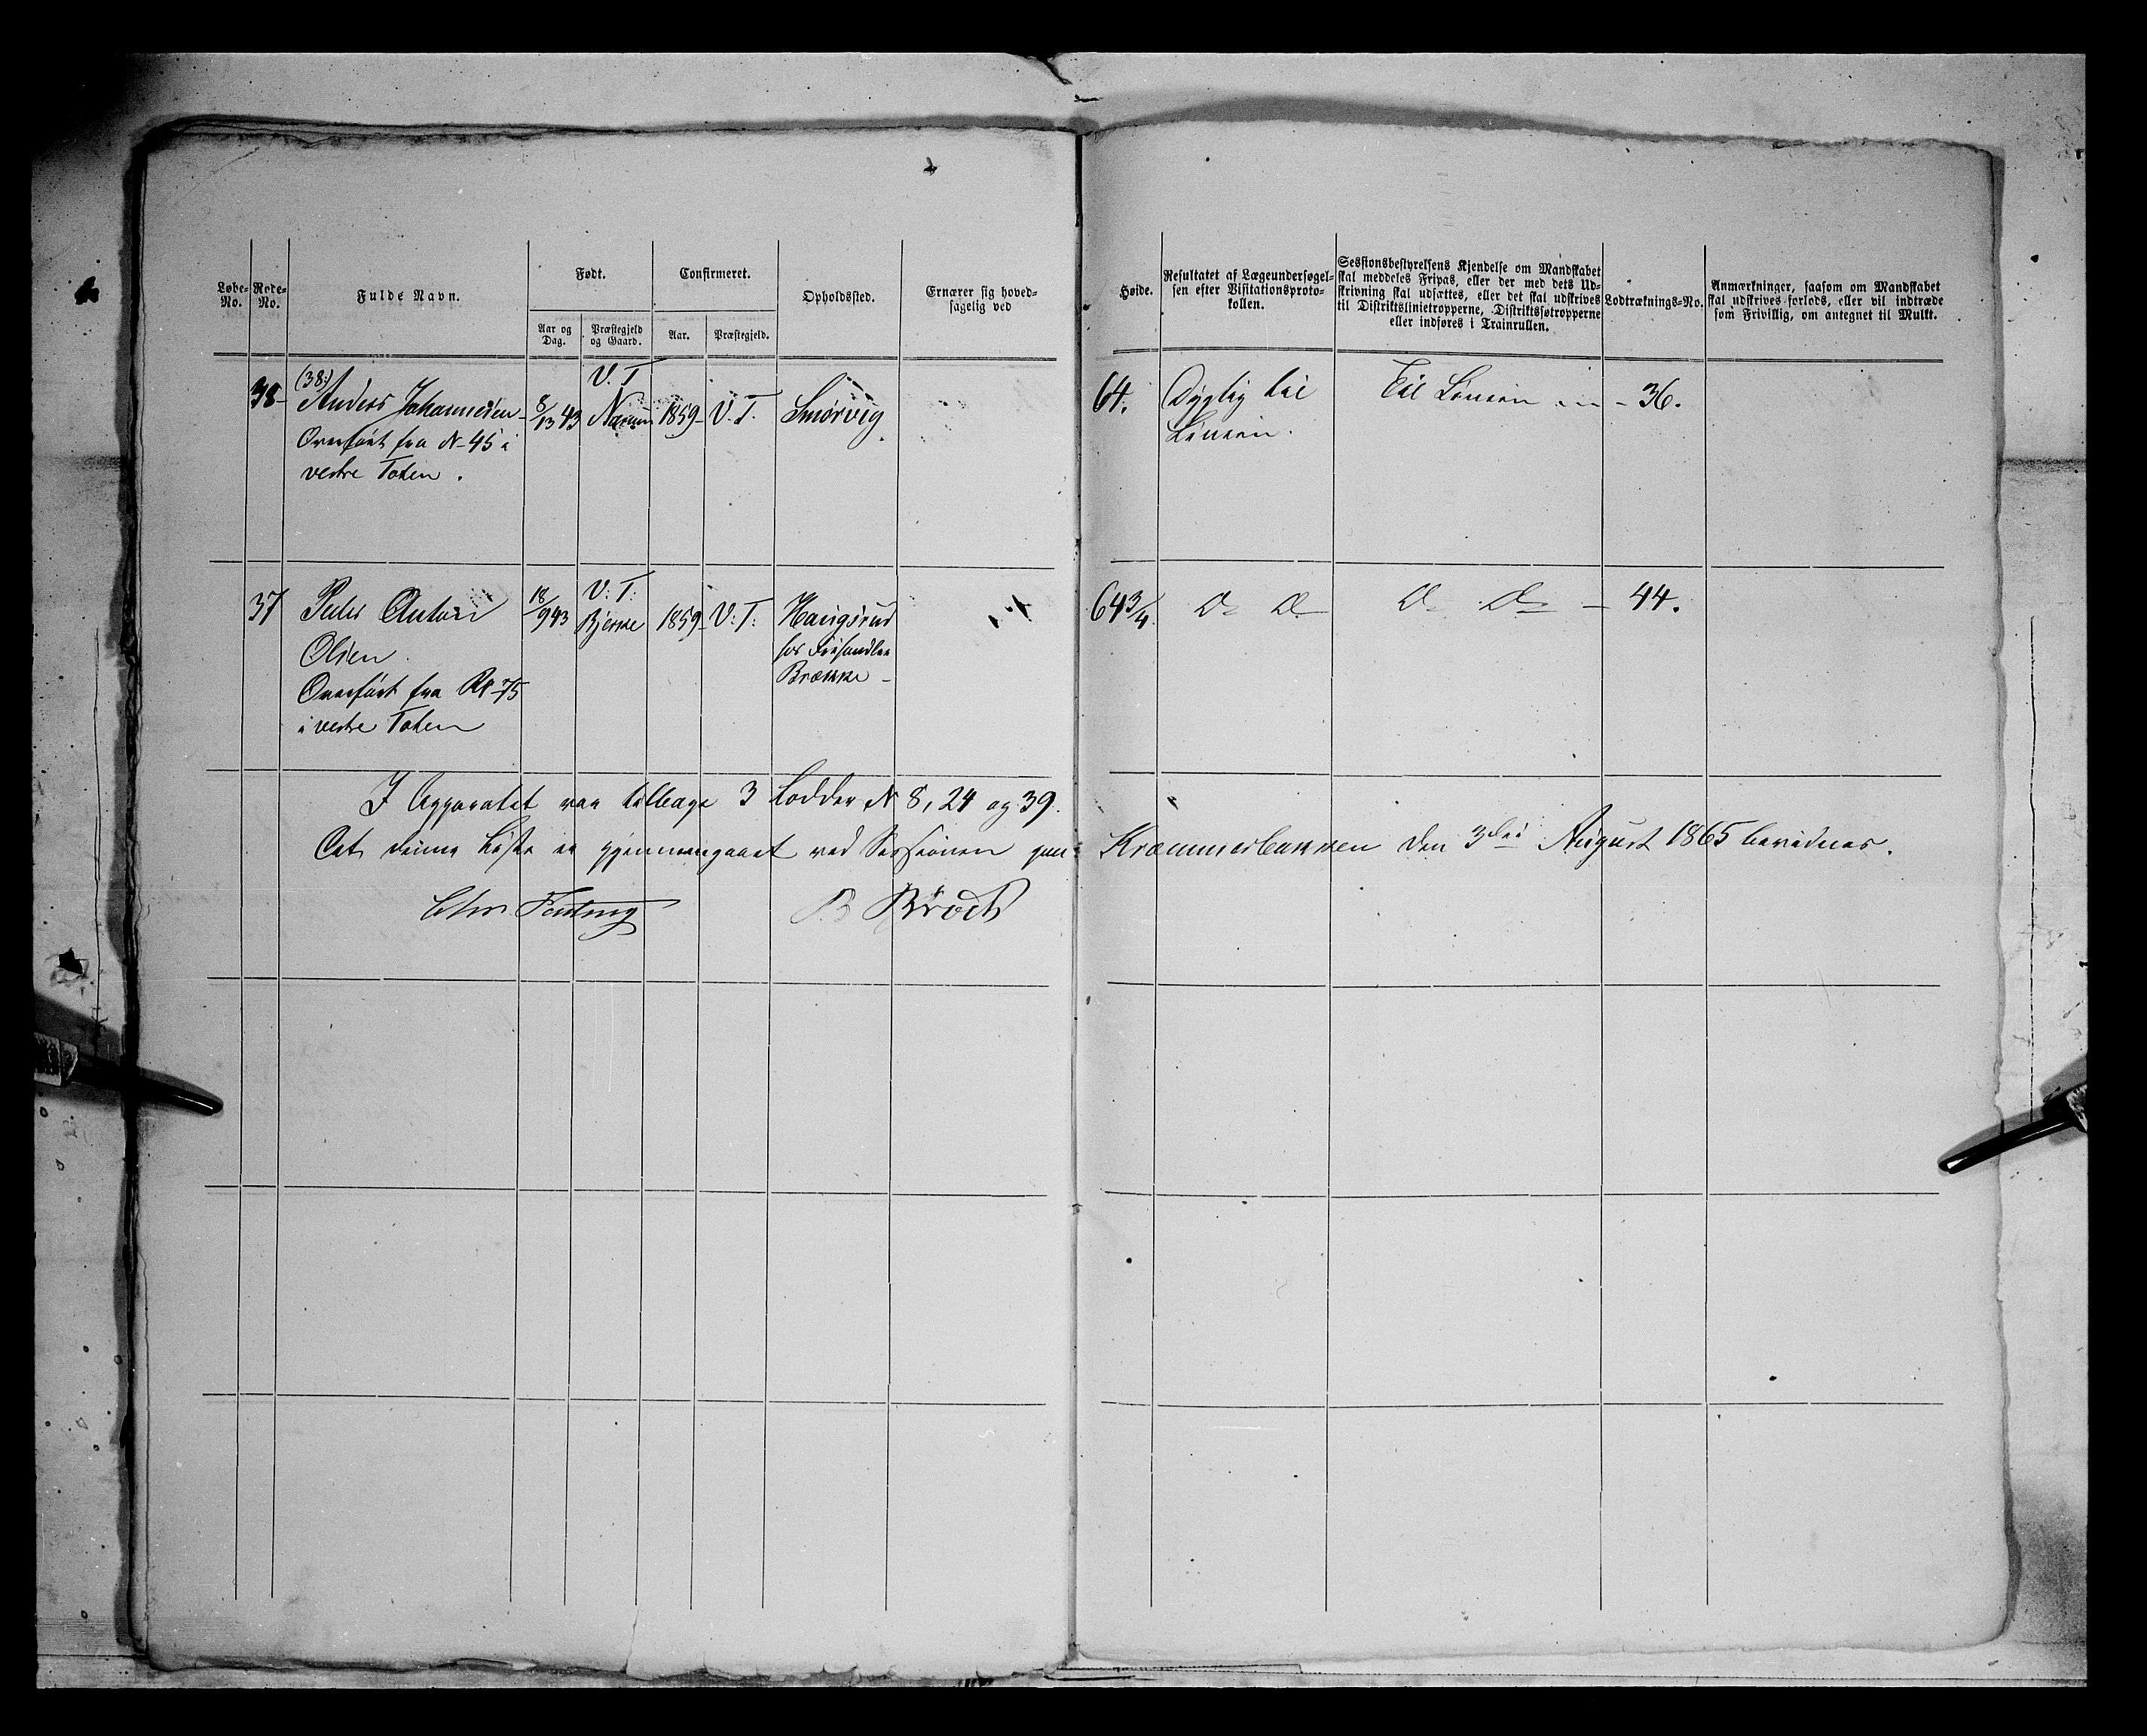 Løbe-No.
Rode-No.
Fulde Navn.
Født.
Aar og Dag.
Præstegjeld og Gaard.
Confirmeret.
Aar.
Præstegjeld.
Opholdssted.
Ernærer sig hoved-
sagelig ved
Høide.
Resultatet af Lægeundersøgel-
sen efter Visitationsproto-
kollen.
Sessionsbestyrelsens Kjendelse om Mandskabet
skal meddeles Fripas, eller der med dets Ud-
skrivning skal udsættes, eller det skal udskrives
til Distriktslinietropperne, Distriktsfotropperne
eller indføres i Trainrullen.
Lodtræknings-No.
Anmærkninger, saasom om Mandskabet
skal udskrives forlods, eller vil indtræde
som Frivillig, om antegnet til Mulkt.
38- (38:) Anders Johannesen- 8/13 43 V. T. 1859- V. T. Smørvig 64. Dygtig til Til Linien - 36.
Overført fra N- 45 i Linien.
vestre Toten.
37 Peder Anton 18/9 43 V: T: Bjerke 1859- V: T: Haugsrud 64 3/4 Do Do Do Do - 44.
Olsen hos
Overført fra No 75 Brække -
i vestre Toten
I Apparatet var tilbage 3 Lodder N 8, 24 og 39.
At denne Liste er gjennemgaaet ved Sessionen paa Kræmmerbakken den 3die August 1865 bevidnes.
B Brodt